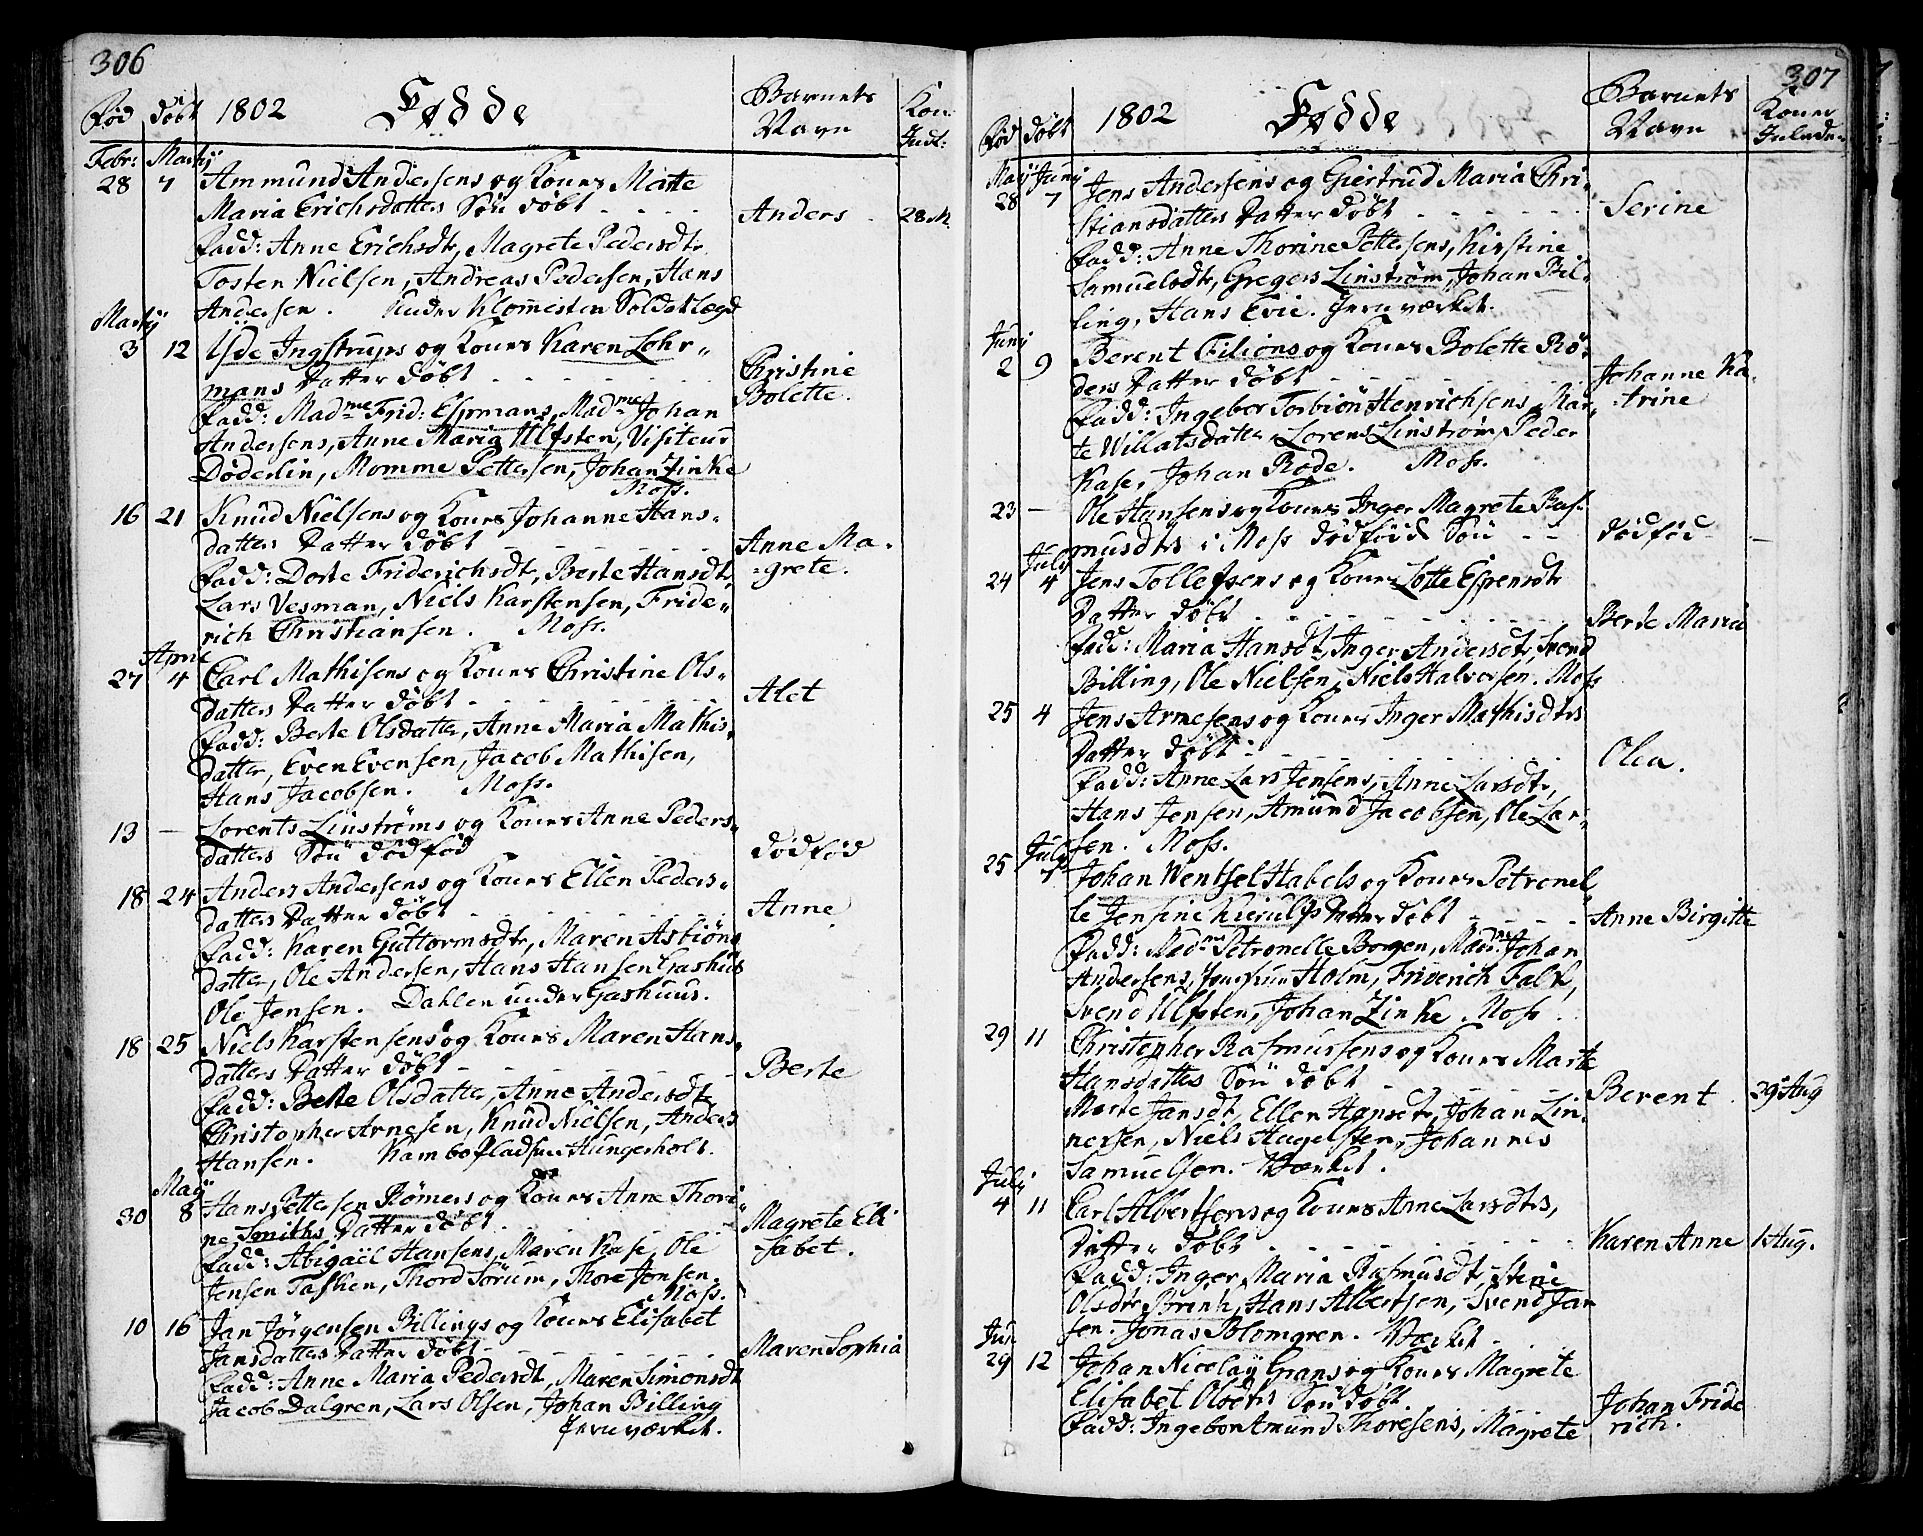 306
Fød döbt 1802 Födde Barnets Navn Kon: Indl:
Febr: Martij
28 7 Ammund Andersens og Kones Marte
Maria Erichsdatters Sön döbt Anders 28 M.
Fadd: Anne Erichsdtr, Magrete Pedersdtr
Tosten Nielsen, Andreas Pedersen, Hans
Andersen. Under Klommesten Soldatlægd
Martij
3 12 Ide Ingstrups og Kones Karen Lohr-
mans Datter döbt Christine
Bolette.
Fadd: Madme Frid: Essmans, Madme Johan
Andersens, Anne Maria Ulfsten, Visiteur
Döderlin, Momme Pettersen, Johan Zinke
Moss.
16 21 Knud Nielsens og Kones Johanne Hans-
datters Datter döbt Anne Ma-
grete.
Fadd: Dorte Friderichsdt, Berte Hansdtr,
Lars Vesman, Niels Karstensen, Fride-
rich Christiansen. Moss.
April
27 4 Carl Mathisens og Kones Christine Ols-
datters Datter döbt Alet
Fadd: Berte Olsdatter, Anne Maria Mathis-
datter, Even Evensen, Jacob Mathisen,
Hans Jacobsen. Moss.
13 — Lorents Linströms og Kones Anne Peders-
datters Sön dödfød dødfød
18 24 Anders Andersens og Kones Ellen Peders-
datters Datter döbt Anne
Fadd: Karen Guttormsdtr, Maren Asbiöns
datter, Ole Andersen, Hans Hansen Gashuus
Ole Jensen. Dahlen under Gashuus.
18 25 Niels Karstensens og Kones Maren Hans-
datters Datter döbt Berte
Fadd: Berte Olsdatter, Anne Andersdtr
Christopher Arnesen, Knud Nielsen, Anders
Hansen. Kambo Pladsen Hungerholt.
May
30 8 Hans Pettersen Römers og Kones Anne Thori-
ne Smiths Datter döbt Magrete Eli
sabet.
Fadd: Abigaël Hansens, Maren Kase, Ole
Jensen Tasken, Thord Sörum, Thore Jensen.
Moss.
10 16 Jan Jörgensen Billings og Kones Elisabet
Jansdatters Datter döbt Maren Sophia
Fadd: Anne Maria Pedersdt, Maren Simonsdt
Jacob Dalgren, Lars Olsen, Johan Billing
Jernværket.
307
Fød döbt 1802 Födde Barnets Navn Koner Inlede
May Junij
28 7 Jens Andersens og Giertrud Maria Chri-
stiansdatters Datter döbt Serine
Fadd: Anne Thorine Pettersens, Kirstine
Samuelsdtr, Gregers Linström, Johan Bil-
ling, Hans Evie. Jernværket.
Junij
2 9 Berent Filions og Kones Bolette Rö-
ders Datter döbt Johanne Ka-
trine
Fadd: Ingebor Torbiön Henrichsens, Mar-
te Willatsdatter, Lorens Linström, Peder
Kase, Johan Rode. Moss.
23 — Ole Hansens og Kones Inger Magrete Ras-
musdtrs i Moss dödföd Sön dödfød —
Julij
24 4 Jens Tollefsens og Kones Lotte Espensdtr
Datter döbt Berte Maria
Fadd: Maria Hansdt, Inger Andersdtr, Svend
Billing, Ole Nielsen, Niels Halvorsen. Moss
25 4 Jens Arnesens og Kones Inger Mathisdtrs
Datter döbt Olea.
Fadd: Anne Lars Jensens, Anne Larsdtr,
Hans Jensen, Amund Jacobsen, Ole Lar-
sen. Moss.
Julij
25 7 Johan Wentsel Habels og Kones Petronel
le Jensine Kierulfs Datter döbt Anne Birgitte
Fadd: Madme Petronelle Borgen, Madme Johan
Andersens, Jomfrue Holm, Friderich Falk,
Svend Ulfsten, Johan Zinke. Moss.
29 11 Christopher Rasmussens og Kones Marte
Hansdatters Sön döbt Berent 29 Aug
Marte Jansdt, Ellen Hansdtr, Johan Lin-
nersen, Niels Hagelsten, Johannes
Samuelsen. Værket.
Julij
4 11 Carl Albertsens og Kones Anne Larsdtrs,
Datter döbt Karen Anne 1 Aug.
Fadd: Inger Maria Rasmusdt, Stine
Olsdtr Brink, Hans Albertsen, Svend Jan
sen. Jonas Blomgren. Værket.
Jun.
29 12 Johan Nicolay Grans og Kones Magrete
Elisabet Olsdtrs Sön döbt Johan Fride
rich.
Fadd: Ingebor Amund Thoresens, Magrete